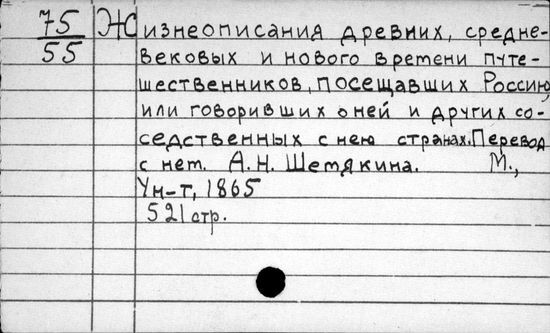 75 Жизнеописания древних, средне-
55 вековых и нового времени путе-
шественников, посещавших Россию,
или говоривших о ней и других со-
седственных с нею странах. Перевод
с нет. А.Н. Шемякина. М.,
Ун-т, 1865
521 стр.